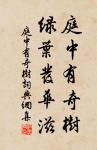 庭中有奇樹
綠葉發華滋
庭中有奇樹詞典網集